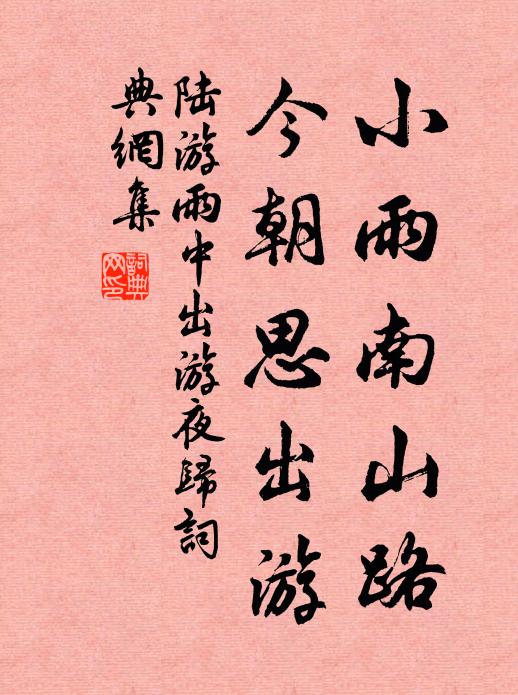 小雨南山路
今朝思出游
陆游雨中出游夜歸詞
典網集
詞典网印